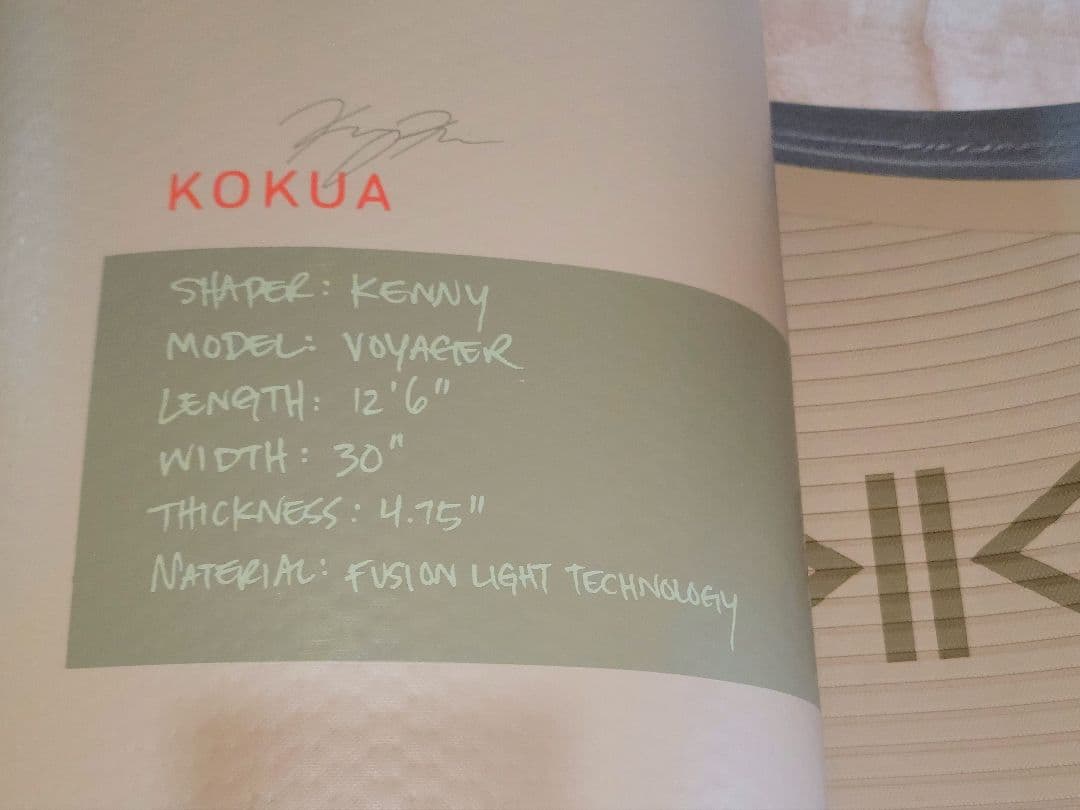 KOKUA
SHAPER: KENNY
MODEL: VOYAGER
LENGTH: 12'6"
WIDTH: 30"
THICKNESS: 4.75"
MATERIAL: FUSION LIGHT TECHNOLOGY